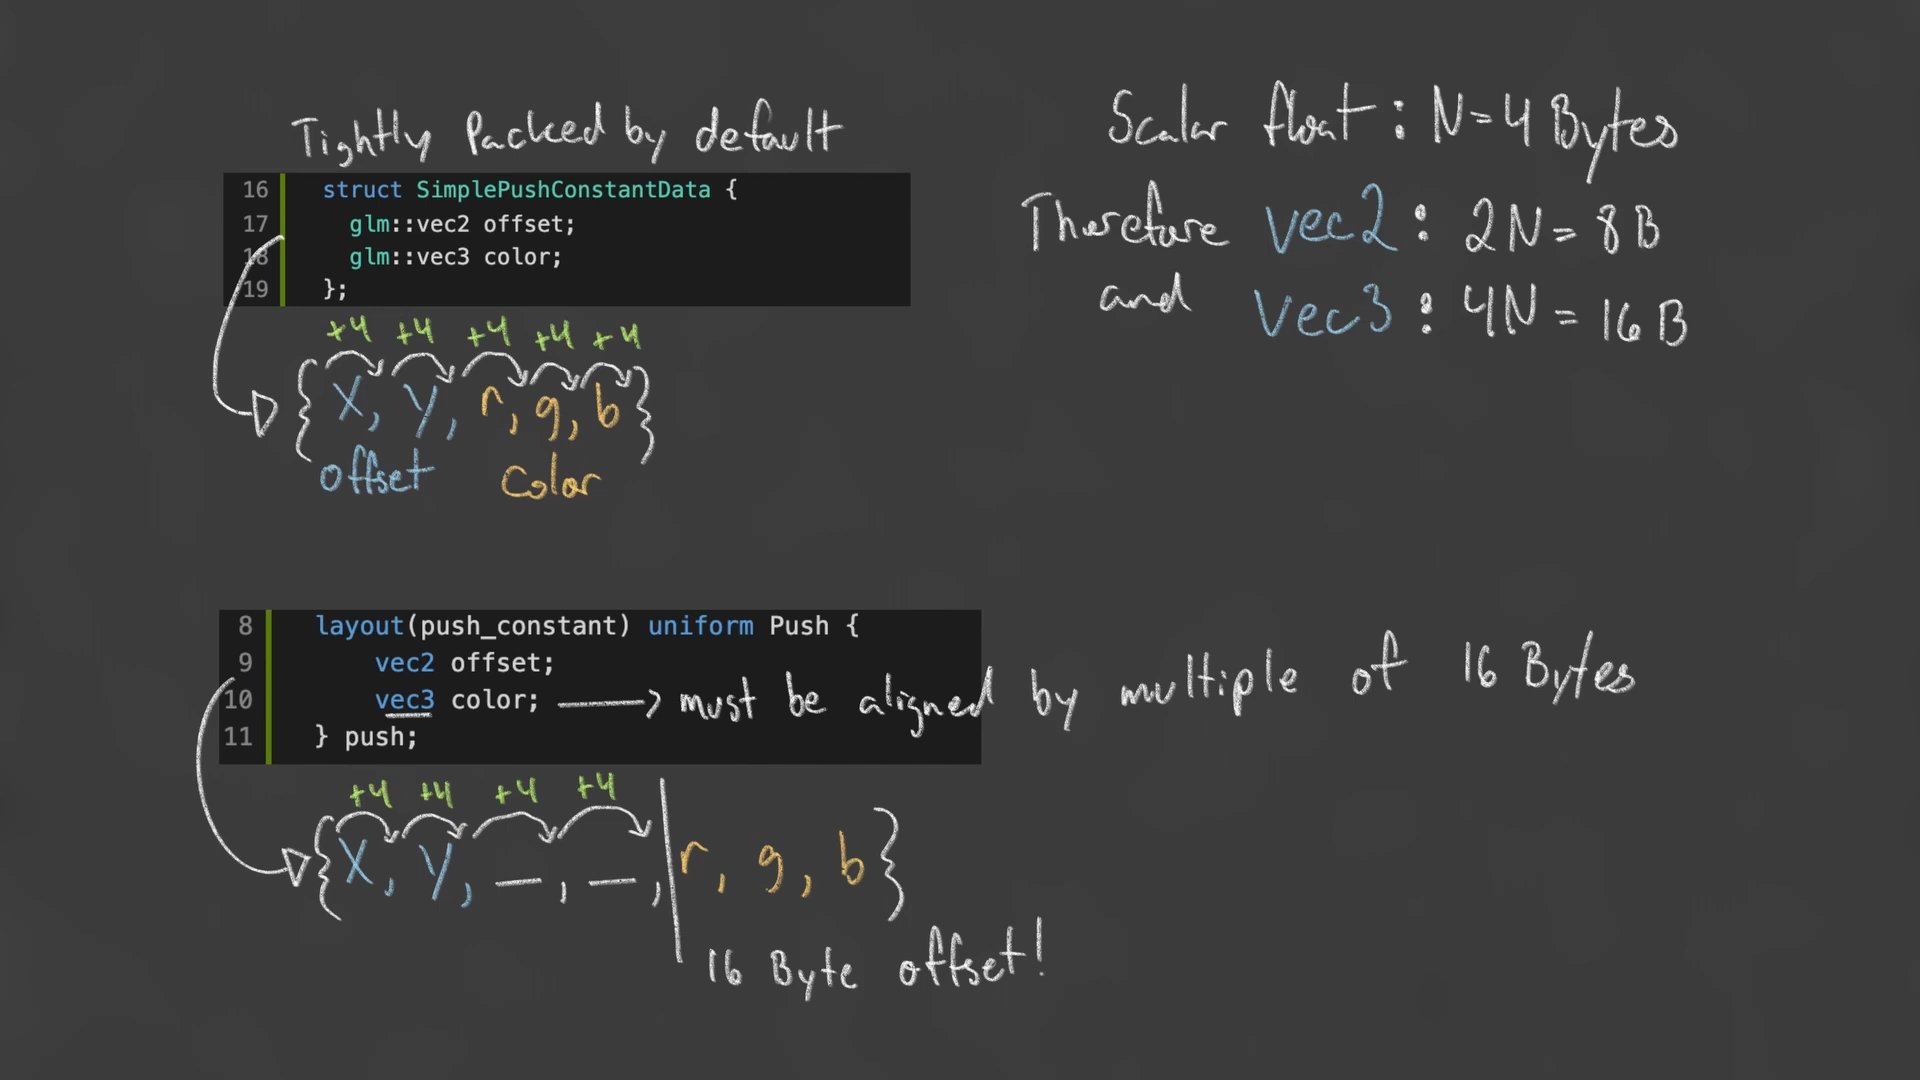 Tightly Packed by default
16 struct SimplePushConstantData {
17 glm::vec2 offset;
18 glm::vec3 color;
19 };
+4 +4 +4 +4 +4
{ x, y, r, g, b }
offset color
Scalar float : N = 4 Bytes
Therefore vec2 : 2N = 8B
and vec3 : 4N = 16B
8 layout(push_constant) uniform Push {
9 vec2 offset;
10 vec3 color; → must be aligned by multiple of 16 Bytes
11 } push;
+4 +4 +4 +4
{ x, y, _, _, | r, g, b }
16 Byte offset!